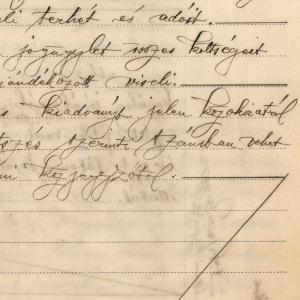 eli terhét és adóit.
jogügylet összes költségeit
ajándékozott viseli.
s kiadványt jelen közokiratról
tszés szerinti számban vehet
közjegyzőtől.